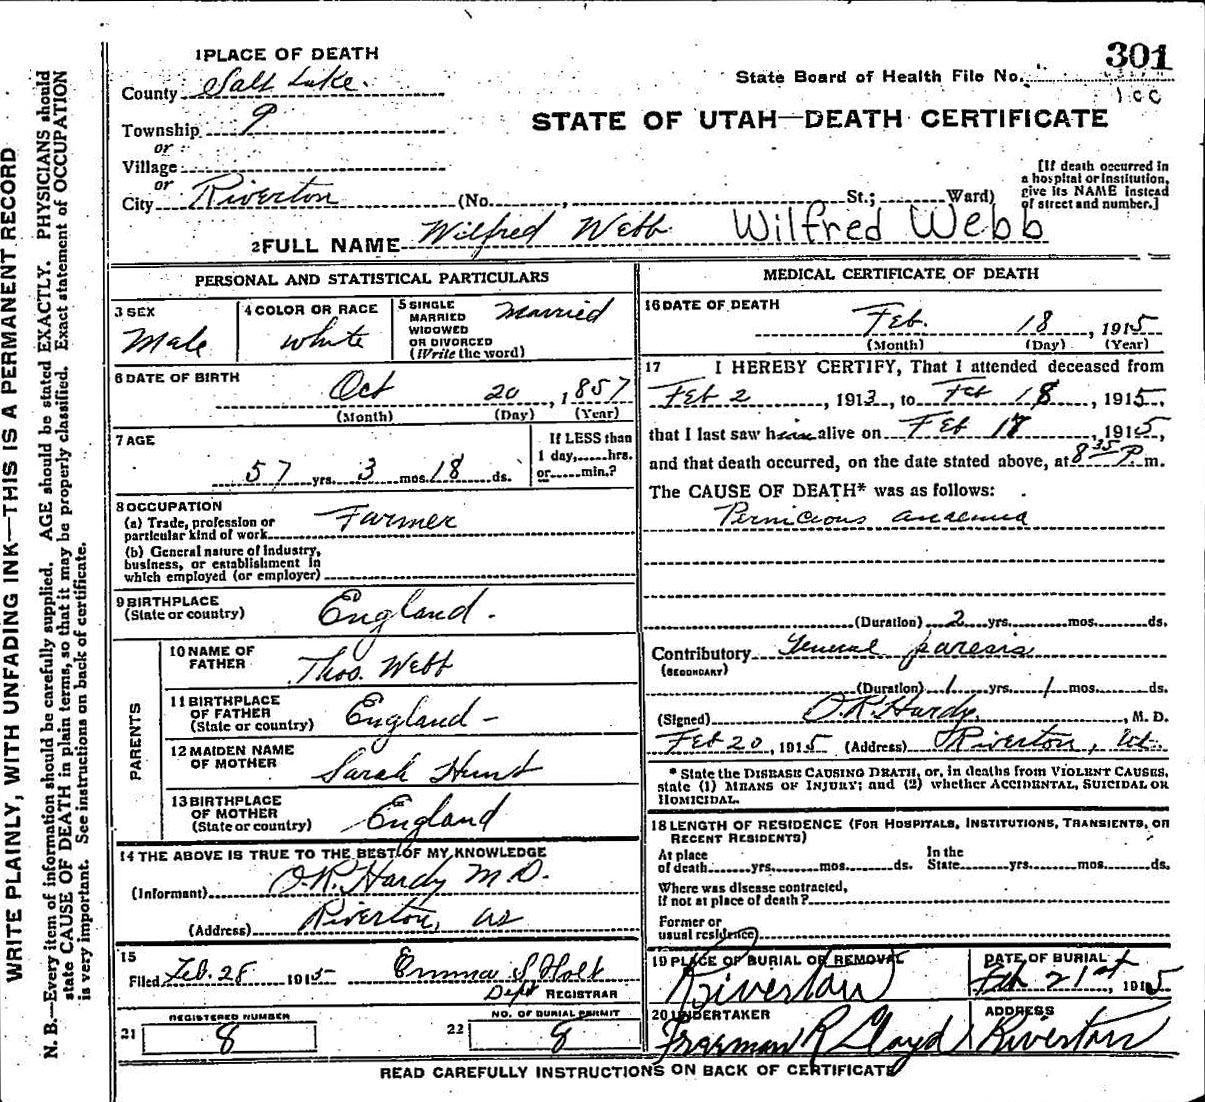 WRITE PLAINLY, WITH UNFADING INK—THIS IS A PERMANENT RECORD
N. B.—Every item of information should be carefully supplied. AGE should be stated EXACTLY. PHYSICIANS should
state CAUSE OF DEATH in plain terms, so that it may be properly classified. Exact statement of OCCUPATION
is very important. See instructions on back of certificate.
1 PLACE OF DEATH
301
State Board of Health File No.
100
County Salt Lake.
STATE OF UTAH—DEATH CERTIFICATE
Township 9
or
Village
or
City Riverton (No. , St.; Ward)
[If death occurred in
a hospital or institution,
give its NAME instead
of street and number.]
2 FULL NAME Wilfred Webb Wilfred Webb
PERSONAL AND STATISTICAL PARTICULARS
3 SEX
Male
4 COLOR OR RACE
white
5 SINGLE
MARRIED
WIDOWED
OR DIVORCED
(Write the word)
Married
6 DATE OF BIRTH
Oct 20, 1857
(Month) (Day) (Year)
7 AGE
57 yrs. 3 mos. 18 ds.
If LESS than
1 day,......hrs.
or......min.?
8 OCCUPATION
(a) Trade, profession or
particular kind of work Farmer
(b) General nature of industry,
business, or establishment in
which employed (or employer)
9 BIRTHPLACE
(State or country) England.
PARENTS
10 NAME OF
FATHER Thos. Webb
11 BIRTHPLACE
OF FATHER
(State or country) England -
12 MAIDEN NAME
OF MOTHER Sarah Hunt
13 BIRTHPLACE
OF MOTHER
(State or country) England
14 THE ABOVE IS TRUE TO THE BEST OF MY KNOWLEDGE
(Informant) O.R. Hardy M.D.
(Address) Riverton,
15
Filed Feb. 28 1915 Emma S Holt
Dept REGISTRAR
21 REGISTERED NUMBER
8
22 NO. OF BURIAL PERMIT
8
MEDICAL CERTIFICATE OF DEATH
16 DATE OF DEATH
Feb. 18, 1915
(Month) (Day) (Year)
17 I HEREBY CERTIFY, That I attended deceased from
Feb 2, 1913, to Feb 18, 1915,
that I last saw him alive on Feb 18, 1915,
and that death occurred, on the date stated above, at 8 35 P. m.
The CAUSE OF DEATH* was as follows:
Pernicious anaemia
(Duration) 2 yrs. mos. ds.
Contributory General paresis
(SECONDARY)
(Duration) 1 yrs. 1 mos. ds.
(Signed) O.R. Hardy, M. D.
Feb 20, 1915 (Address) Riverton, Ut.
* State the DISEASE CAUSING DEATH, or, in deaths from VIOLENT CAUSES,
state (1) MEANS OF INJURY; and (2) whether ACCIDENTAL, SUICIDAL OR
HOMICIDAL.
18 LENGTH OF RESIDENCE (FOR HOSPITALS, INSTITUTIONS, TRANSIENTS, OR
RECENT RESIDENTS)
At place
of death......yrs......mos......ds.
In the
State......yrs......mos......ds.
Where was disease contracted,
if not at place of death?
Former or
usual residence
19 PLACE OF BURIAL OR REMOVAL
Riverton
DATE OF BURIAL
Feb 21st, 1915
20 UNDERTAKER
Freeman R Lloyd
ADDRESS
Riverton
READ CAREFULLY INSTRUCTIONS ON BACK OF CERTIFICATE